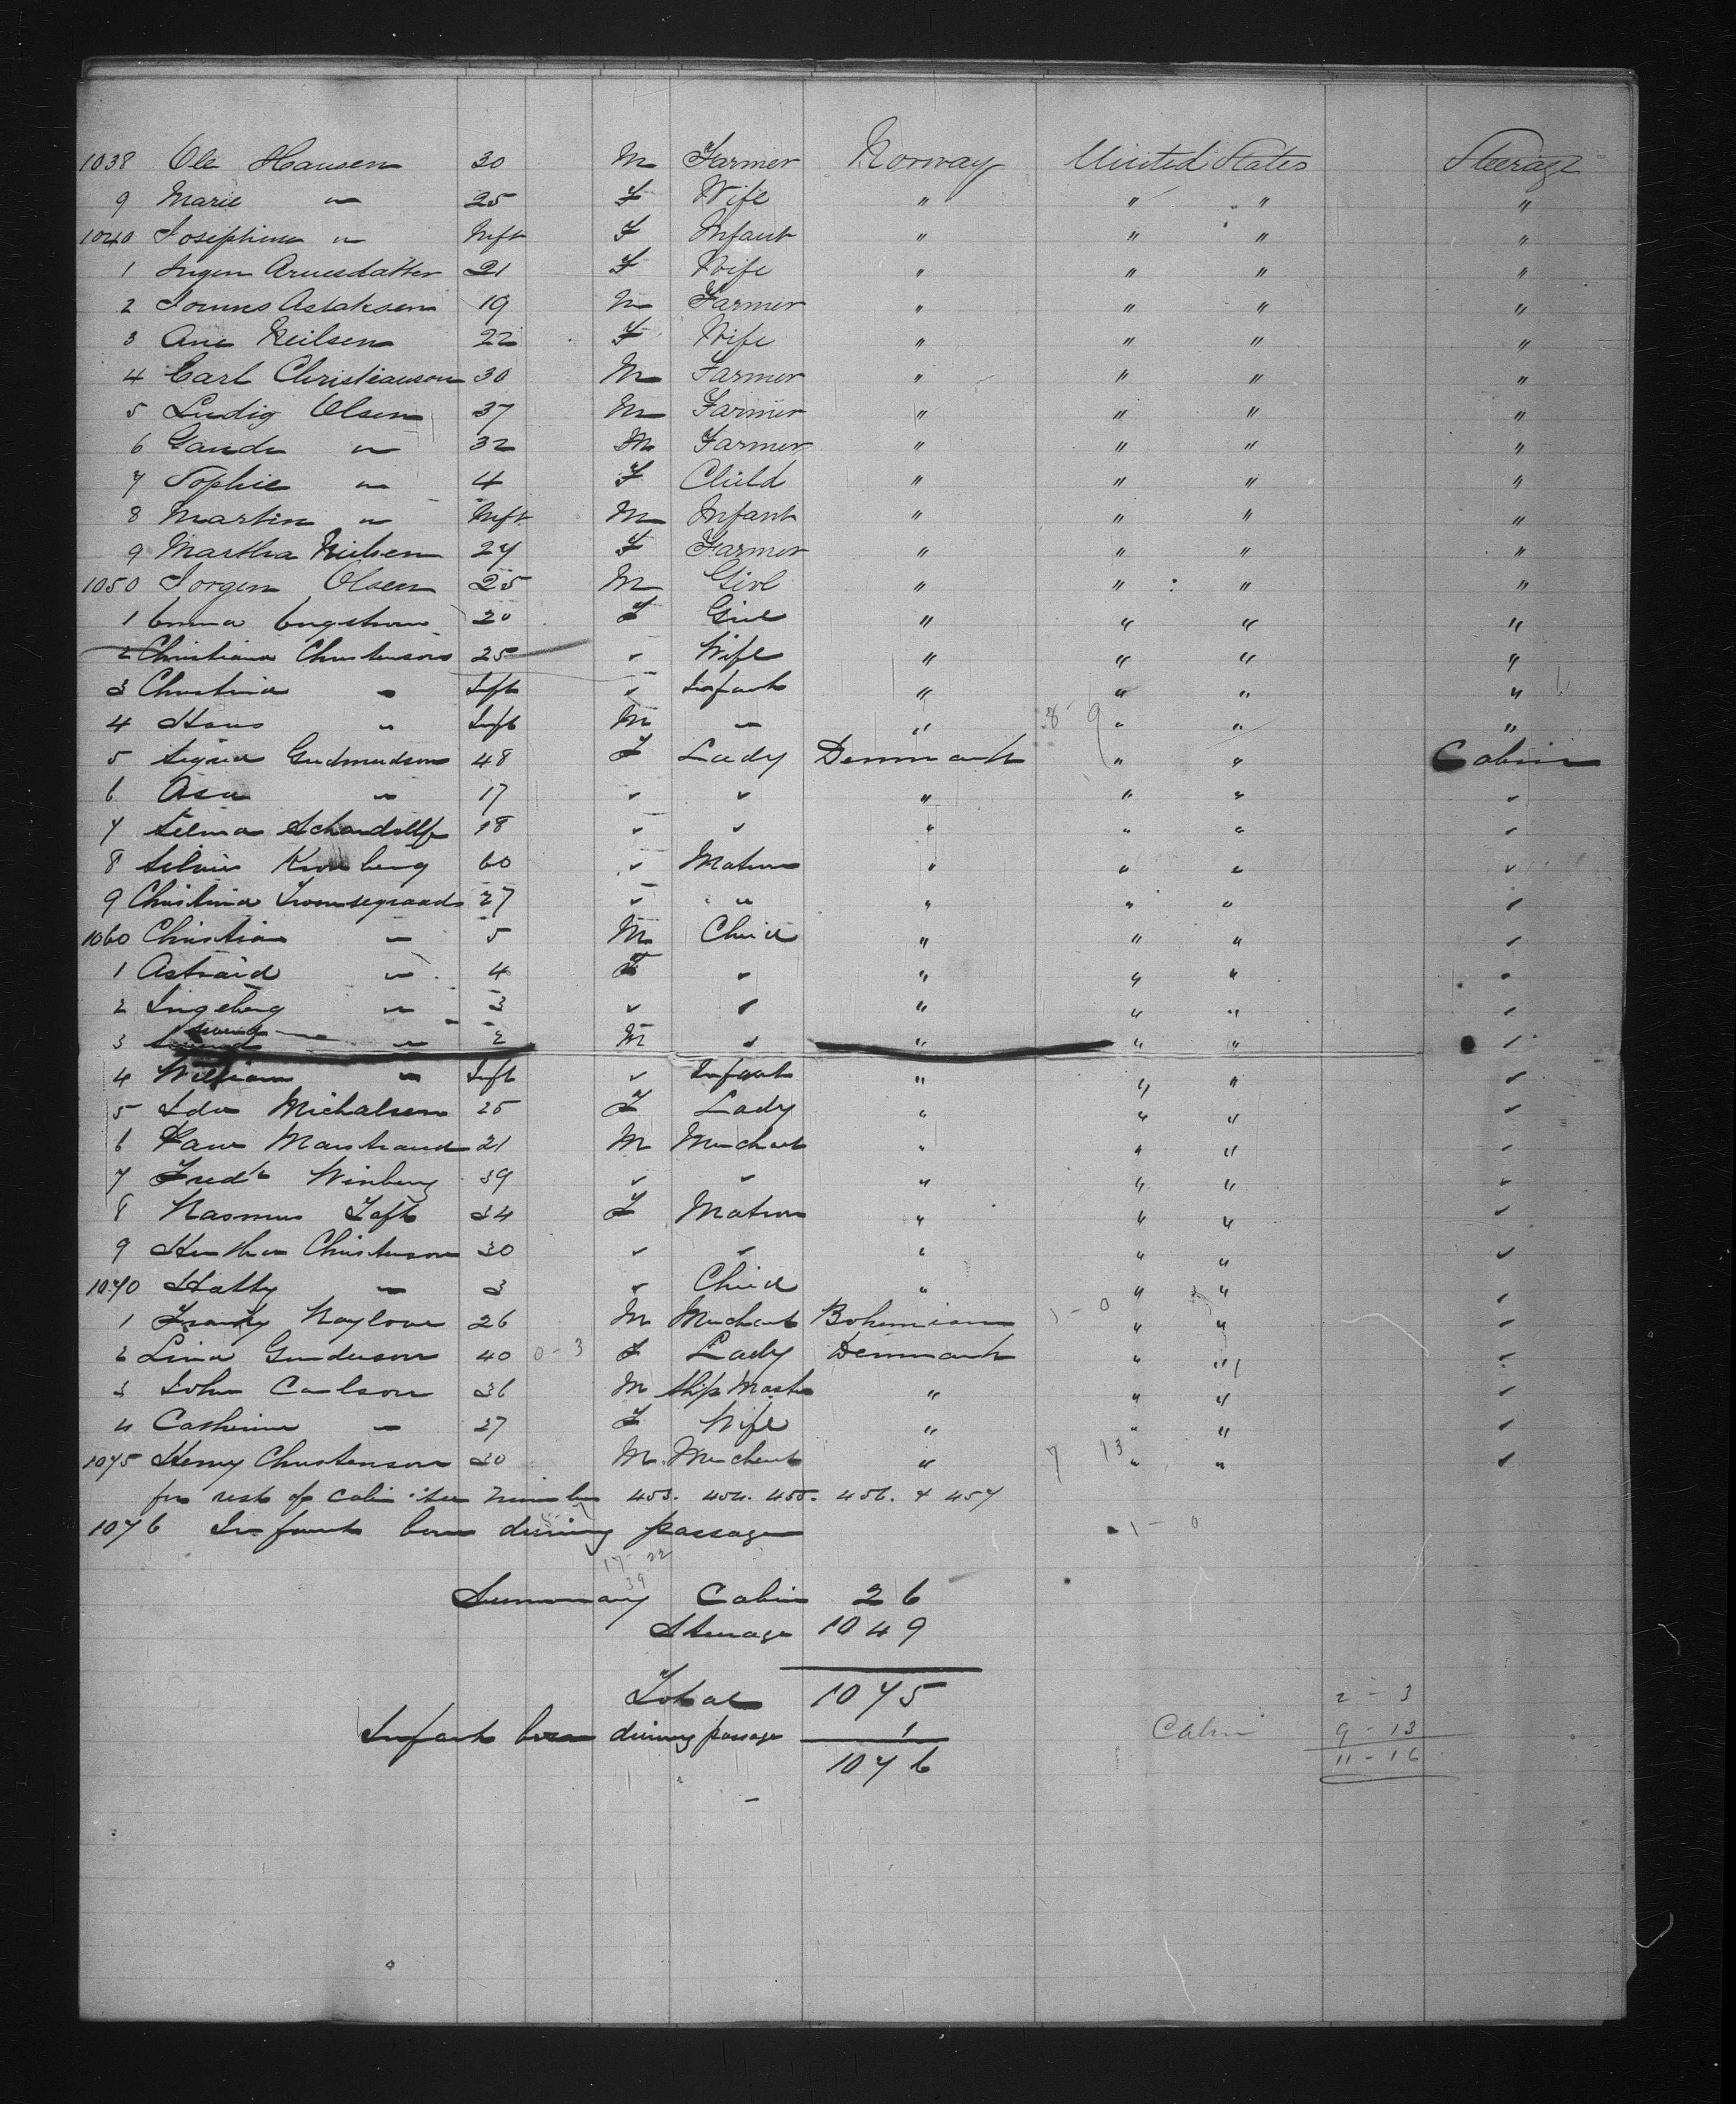 1038 Ole Hansen 30 M Farmer Norway United States Steerage
9 Marie " 25 F Wife " " " "
1040 Josephine " Inft F Infant " " " "
1 Ingen Arnesdatter 21 F Wife " " " "
2 Aslaksen 19 M Farmer " " " "
3 Ane Neilsen 22 F Wife " " " "
4 Carl Christianson 30 M Farmer " " " "
5 Ludig Olsen 37 M Farmer " " " "
6 " 32 M Farmer " " " "
7 Sophie " 4 F Child " " " "
8 Martin " Inft M Infant " " " "
9 Martha Nielsen 27 F Farmer " " " "
1050 Jorgen Olsen 25 M Girl " " " "
1 Emma Engstrom 20 F Girl " " " "
2 Christiana Christenson 25 " Wife " " " "
3 Christina " Inft " Infant " " " "
4 Hans " Inft M " " 8 - 9 " " "
5 Sigrid Gudmudson 48 F Lady Denmark " " Cabin
6 Asa " 17 " " " " " "
7 Selma 18 " " " " " "
8 60 " Matron " " " "
9 Christina 27 " " " " " "
1060 Christian " 5 M Child " " " "
1 Astraid " 4 F " " " " "
2 Ingeberg " 3 " " " " " "
3 " 2 M " " " " "
4 William " Inft " Infant " " " "
5 Ida Michalsen 25 F Lady " " " "
6 Marstrand 21 M Merchant " " " "
7 Fredk Winberg 39 " " " " " "
8 Rasmus Toft 34 F Matron " " " "
9 Christenson 30 " " " " " "
1070 Hatty " 3 " Child " " " "
1 26 M Merchant Bohemian 1 - 0 " " "
2 Lina Gunderson 40 0 - 3 F Lady Denmark " " "
3 John Carlson 36 M Ship Master " " " "
4 Catherine " 27 F Wife " " " "
1075 Henry Christenson 30 M Merchant " 7 13 " " "
for rest of cabin see Number 453. 454. 455. 456. & 457
1076 Infant born during passage 1 - 0
17 - 22
39
Summary Cabin 26
Steerage 1049
Total 1075 2 - 3
Infant born during passage 1 Cabin 9 - 13
1076 11 - 16